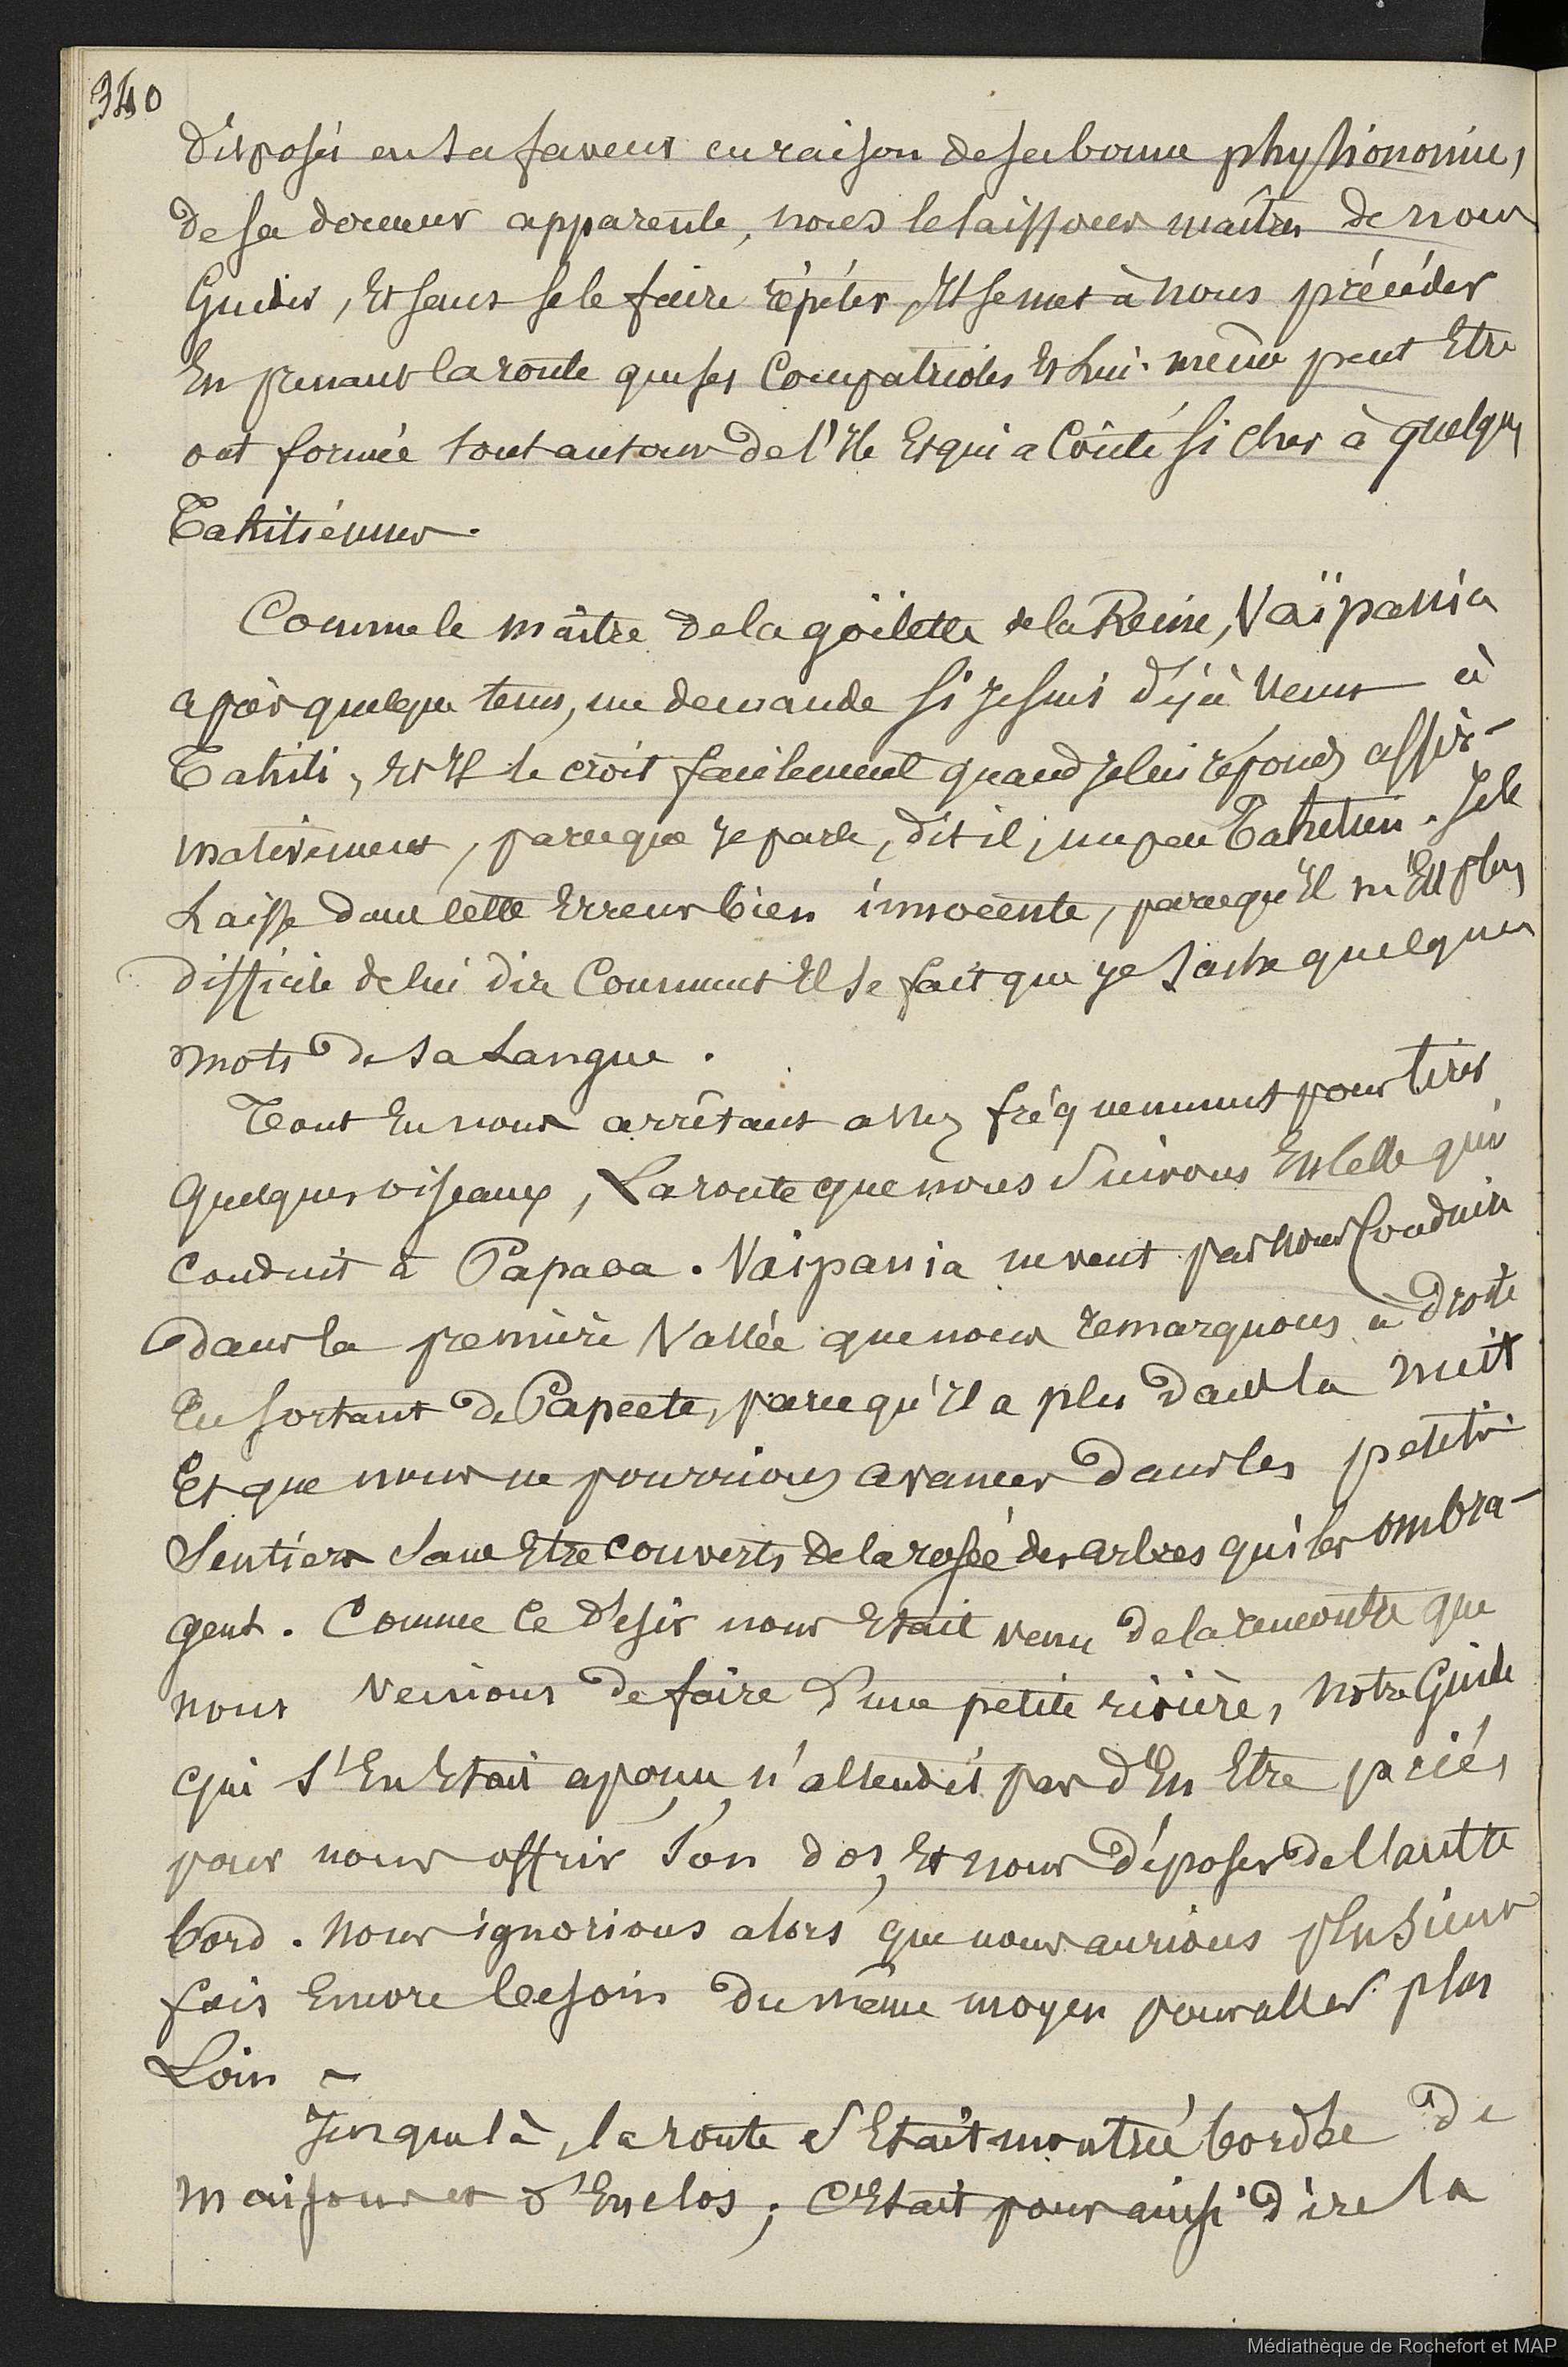 340
disposés en sa faveur en raison de sa bonne physionomie,
de sa douceur apparente, nous le laissons maître de nous
Guider, Et sans se le faire répéter, Il se met à nous précéder
En prenant la route que ses Compatriotes Et Lui-même peut Etre
ont formée tout autour de l'Ile Et qui a Coûté si cher à quelques
Tahitiennes.
Comme le maître de la goëlette de la Reine, Vaïpania
après quelque tems, me demande si Je suis déjà venu à
Tahiti, Et Il le croit facilement quand Je lui réponds affir-
mativement, parceque Je parle, dit il, un peu Tahitien. Je le
Laisse dans cette Erreur bien innocente, parcequ'Il m'Est plus
difficile de lui dire Comment Il se fait que Je sache quelques
mots de sa Langue.
Tout En nous arrêtant assez fréquemment pour tirer
quelques oiseaux, La route que nous suivons Est celle qui
conduit à Papaoa. Vaïpania ne veut pas nous Conduire
dans la première Vallée que nous remarquons à droite
En sortant de Papeete, parcequ'Il a plu dans la nuit
Et que nous ne pourrions avancer dans les petits
Sentiers sans Etre couverts de la rosée des arbres qui les ombra-
gent. Comme ce désir nous Etait venu de la rencontre que
nous venions de faire d'une petite rivière, notre Guide
qui s'En Etait aperçu, n'attendit pas d'En Etre prié
pour nous offrir son dos, Et nous déposer de l'autre
bord. Nous ignorions alors que nous aurions plusieurs
fois Encore besoin du même moyen pour aller plus
Loin -
Jusque là, la route s'Etait montrée bordée de
maisons et d'Enclos; C'Etait pour ainsi dire la
Médiathèque de Rochefort et MAP